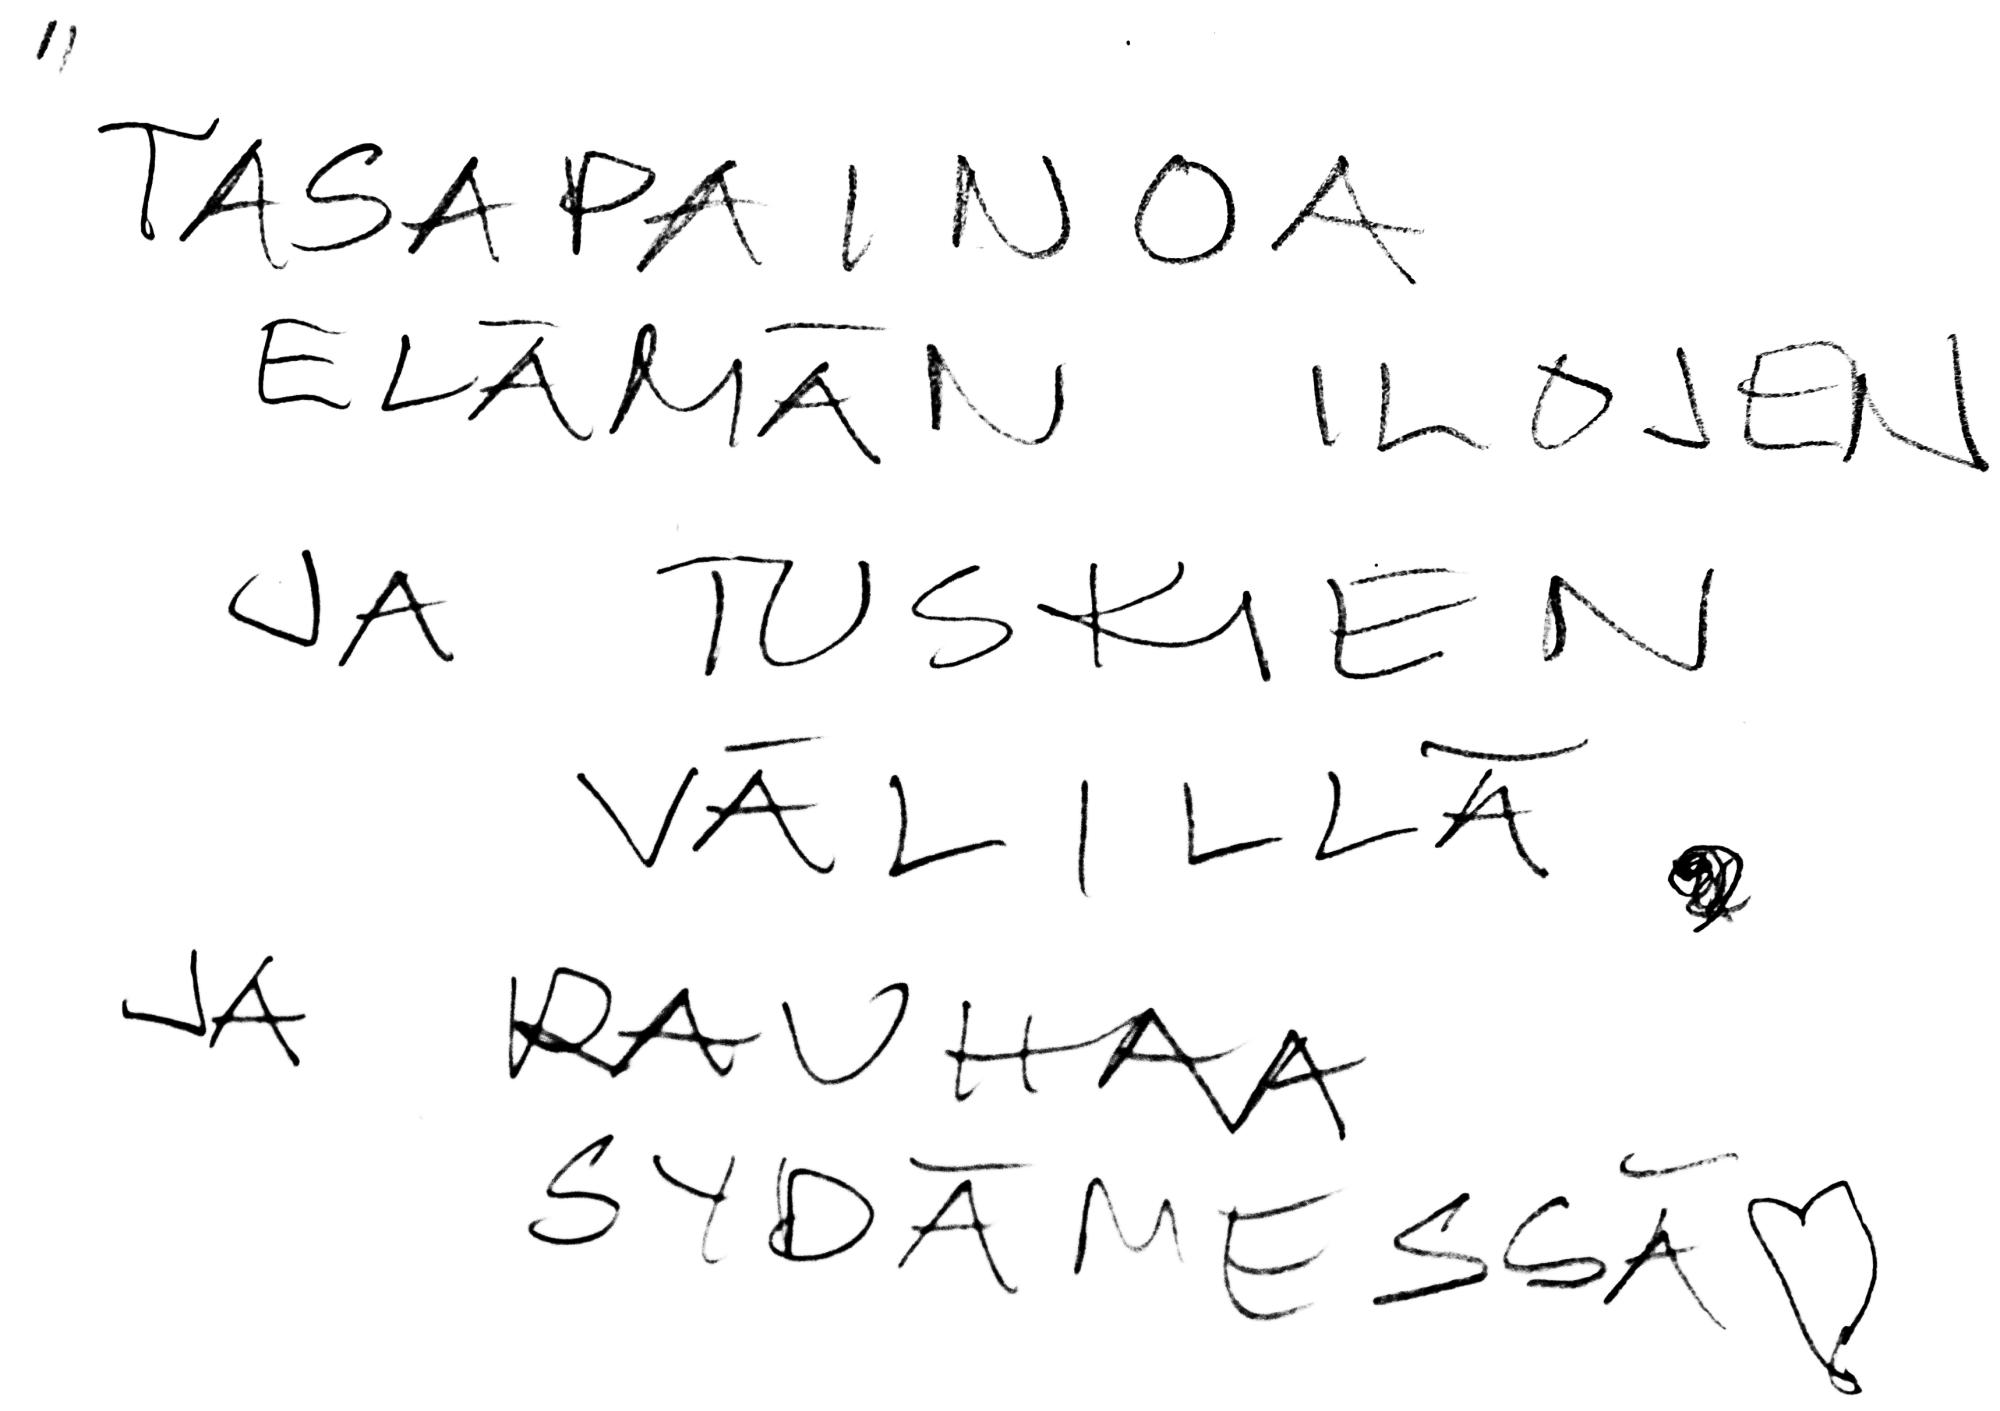 "
TASAPAINOA
ELÄMÄN ILOJEN
JA TUSKIEN
VÄLILLÄ
JA RAUHAA
SYDÄMESSÄ